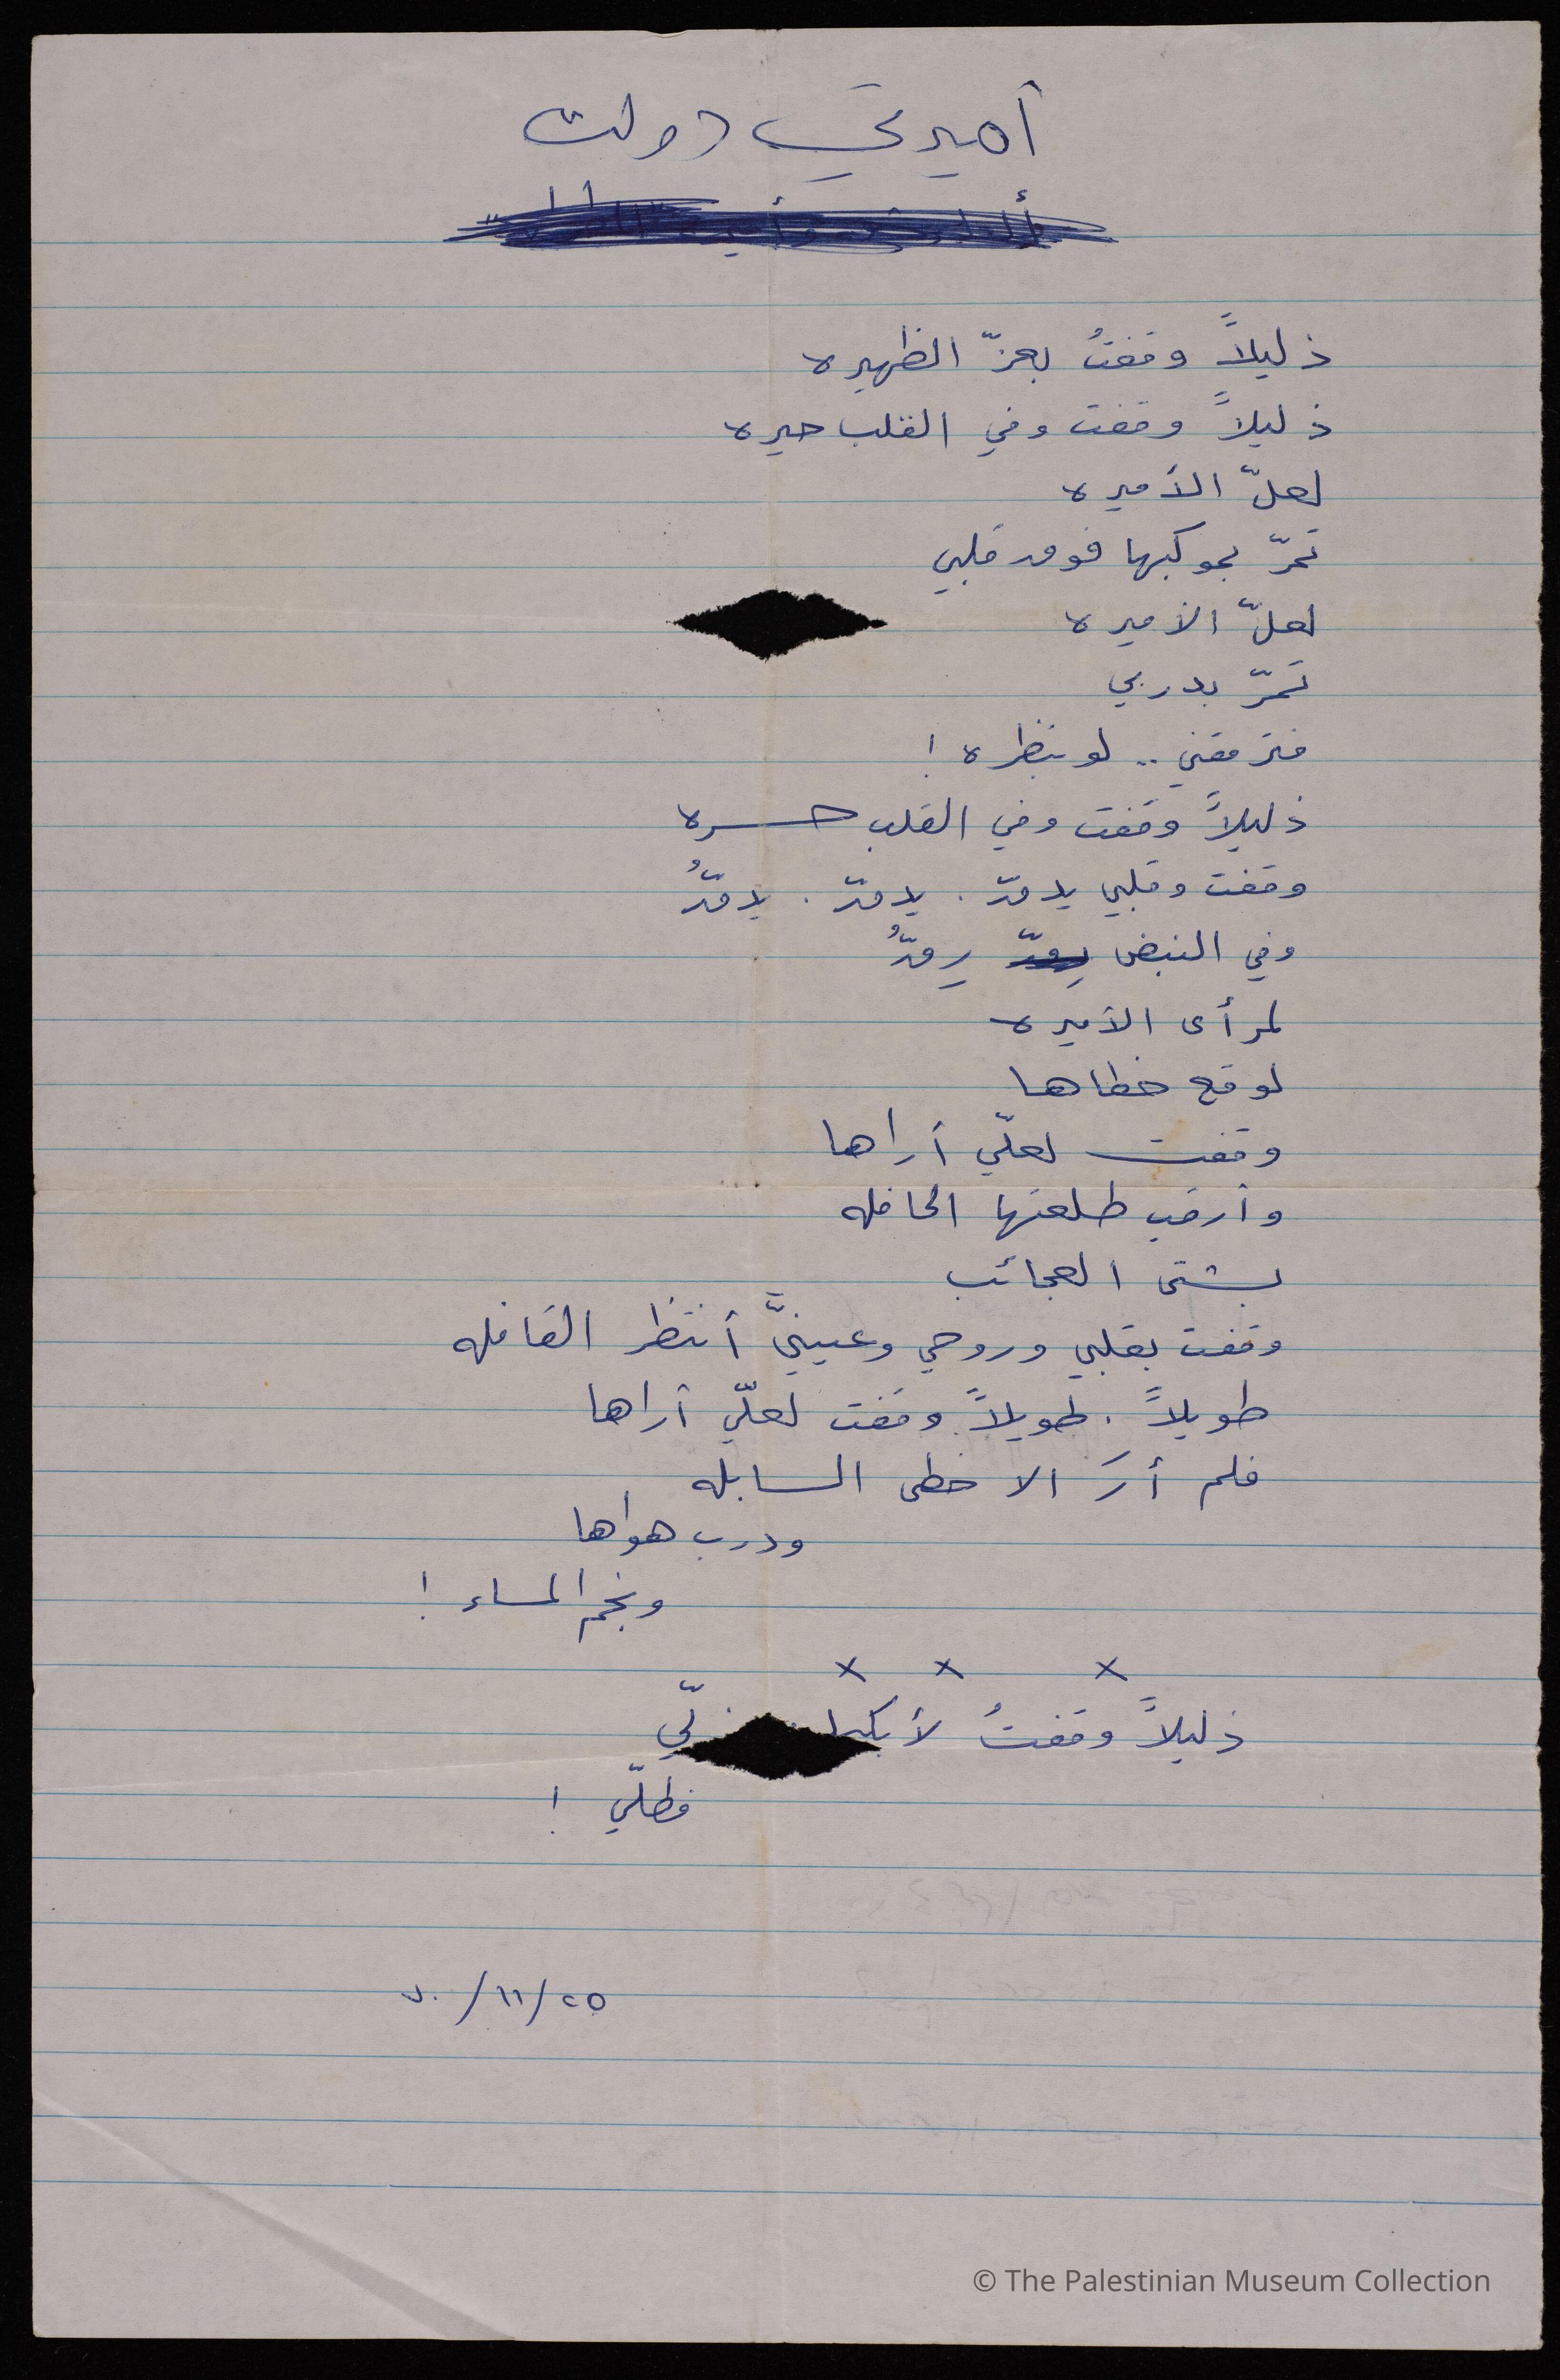 أميرتي دولت
ذليلاً وقفتُ بعزّ الظهيره
ذليلاً وقفت وفي القلب حيره
لعلّ الأميره
تمرّ بموكبها فوق قلبي
لعلّ الأميره
تمرّ بدربي
فترمقني .. لو بنظره !
ذليلاً وقفت وفي القلب حسره
وقفت وقلبي يدقّ . يدقّ . يدقُّ
وفي النبض رِقّ رِقُّ
لمرأى الأميره
لوقع خطاها
وقفت لعلّي أراها
وأرقب طلعتها الحافله
بشتى العجائب
وقفت بقلبي وروحي وعينيَّ أنتظر القافله
طويلاً . طويلاً وقفت لعلّي أراها
فلم أرَ الا خطى السابله
ودرب هواها
ونجم المساء !
x x x
ذليلاً وقفتُ لأبكي
فطلّي !
٢٥/١١/٧٠
© The Palestinian Museum Collection